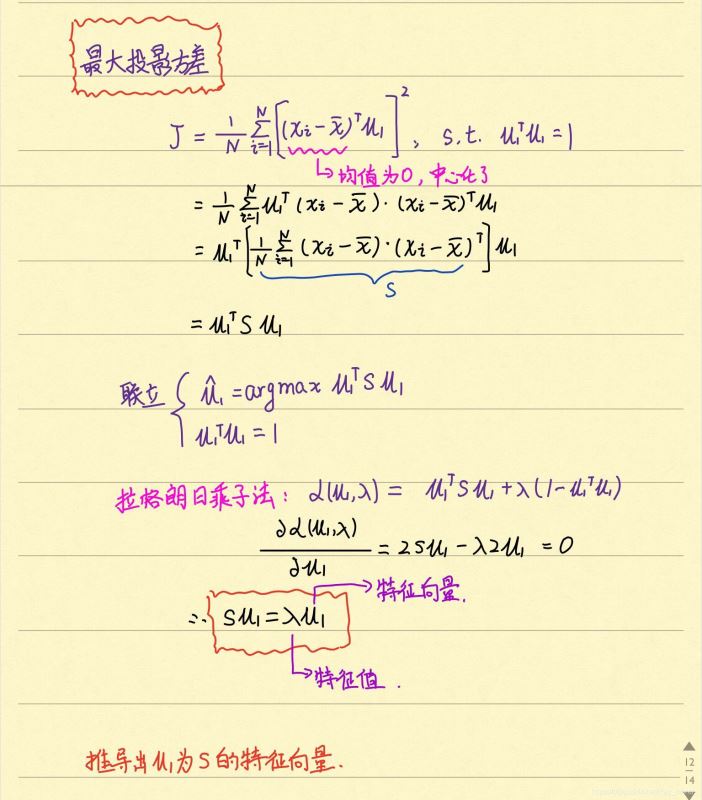 最大投影方差
J = 1/N ∑_{i=1}^{N} [(x_i − x̄)^T u_1]^2, s.t. u_1^T u_1 = 1
↳ 均值为0, 中心化了
= 1/N ∑_{i=1}^{N} u_1^T (x_i − x̄) · (x_i − x̄)^T u_1
= u_1^T [1/N ∑_{i=1}^{N} (x_i − x̄) · (x_i − x̄)^T] u_1
S
= u_1^T S u_1
联立 { û_1 = argmax u_1^T S u_1
u_1^T u_1 = 1
拉格朗日乘子法: L(u_1, λ) = u_1^T S u_1 + λ(1 − u_1^T u_1)
∂L(u_1, λ)/∂u_1 = 2Su_1 − λ2u_1 = 0
→ 特征向量.
∴ Su_1 = λu_1
↳ 特征值.
推导出u_1为S的特征向量.
12
14